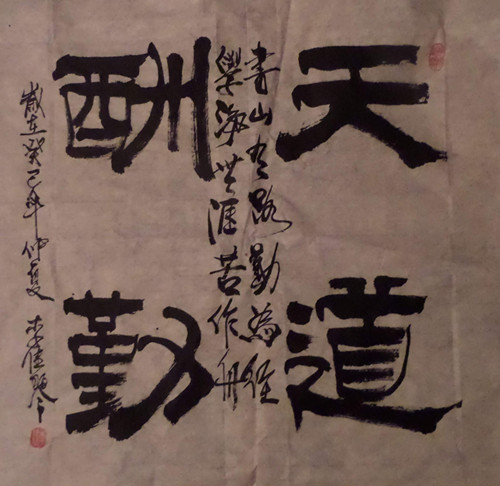 天道
書山有路勤為徑
學海無涯苦作舟
酬勤
歲在癸巳年仲夏